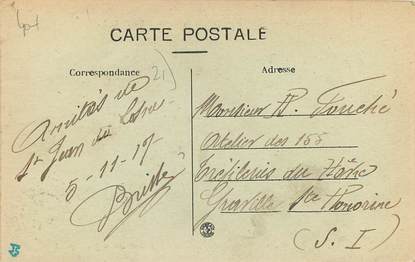 CARTE POSTALE
Correspondance
Amitiés de
St Jean de Losne
5-11-17
Adresse
Monsieur P. Fouché
Atelier des 155
Tréfileries du Hâvre
Graville Ste Honorine
(S. I)